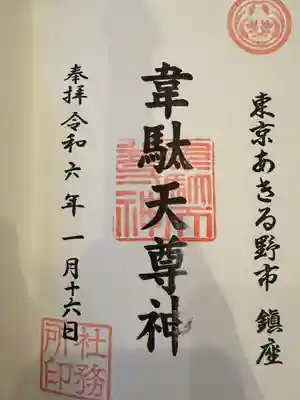 東京あきる野市 鎮座
韋駄天尊神
奉拝 令和六年一月十六日
社務所印